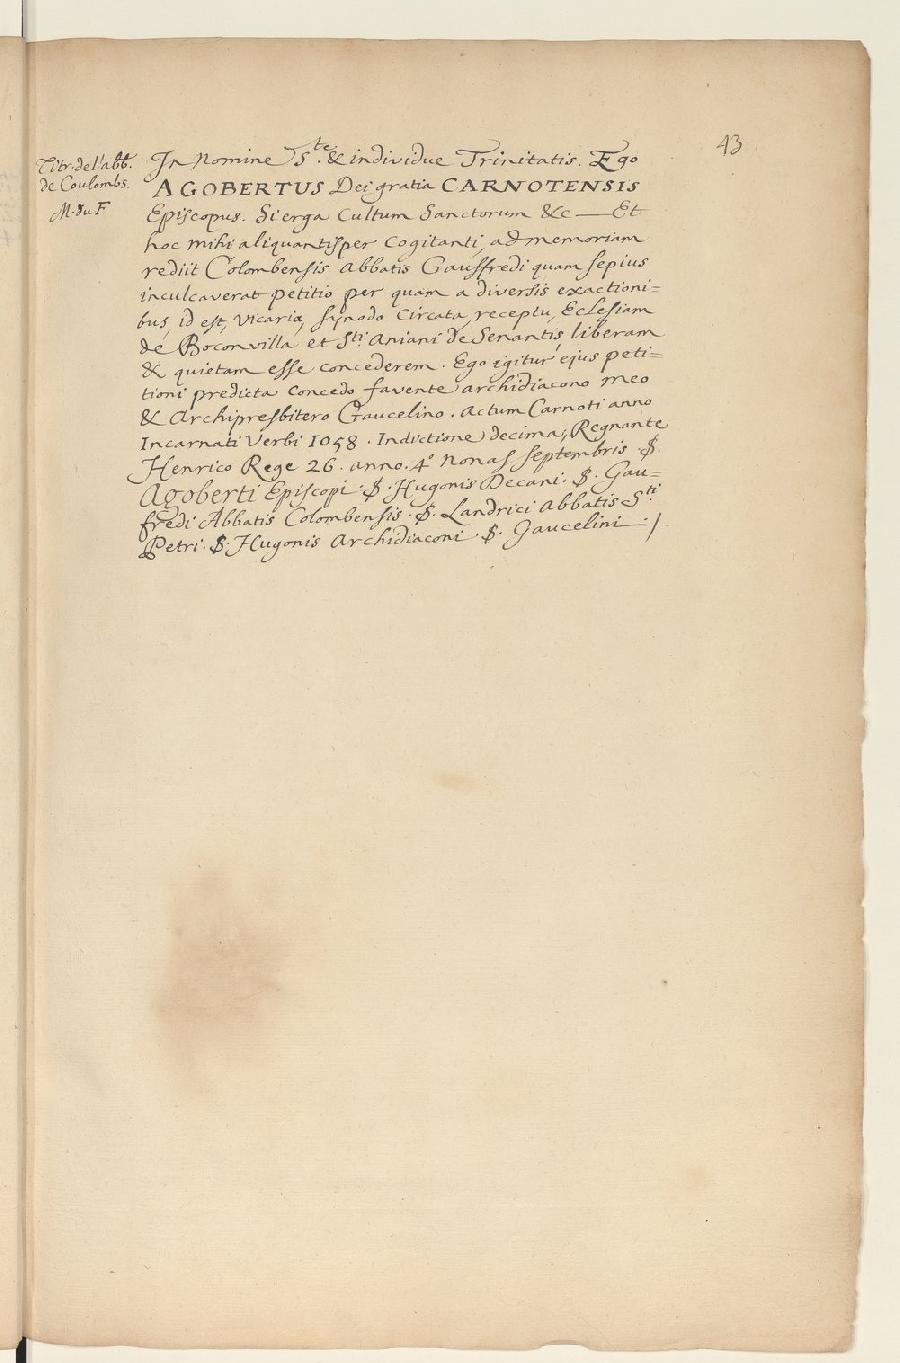 43
Titr. de l'abb.
de Coulombs.
M. du F
In Nomine S.te & individue Trinitatis. Ego
AGOBERTUS Dei gratia CARNOTENSIS
Episcopus. Si erga Cultum Sanctorum &c — Et
hoc mihi aliquantisper cogitanti, ad memoriam
rediit Colombensis Abbatis Gausfredi quam sepius
inculcaverat petitio per quam a diversis exactioni=
bus, id est, vicaria, synodo circata, receptu, Eclesiam
de Boconvilla et S.ti Aniani de Senantis liberam
& quietam esse concederem. Ego igitur ejus peti=
tioni predicta concedo favente archidiacono meo
& Archipresbitero Gaucelino. Actum Carnoti anno
Incarnati Verbi 1058. Indictione decima, Regnante
Henrico Rege 26. anno. 4° Nonas septembris $.
Agoberti Episcopi. $. Hugonis Decani. $. Gau=
fredi Abbatis Colombensis. $. Landrici Abbatis S.ti
Petri. $. Hugonis Archidiaconi $. Gaucelini ./